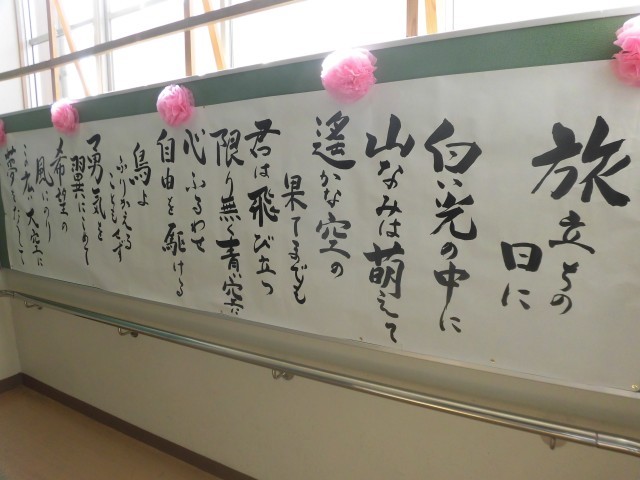 旅立ちの
日に
白い光の中に
山なみは萌えて
遥かな空の
果てまでも
君は飛び立つ
限り無く青い空に
心ふるわせ
自由を駆ける
鳥よ
ふりかえる
こともせず
勇気を
翼にこめて
希望の
風にのり
この広い大空に
夢をたくして